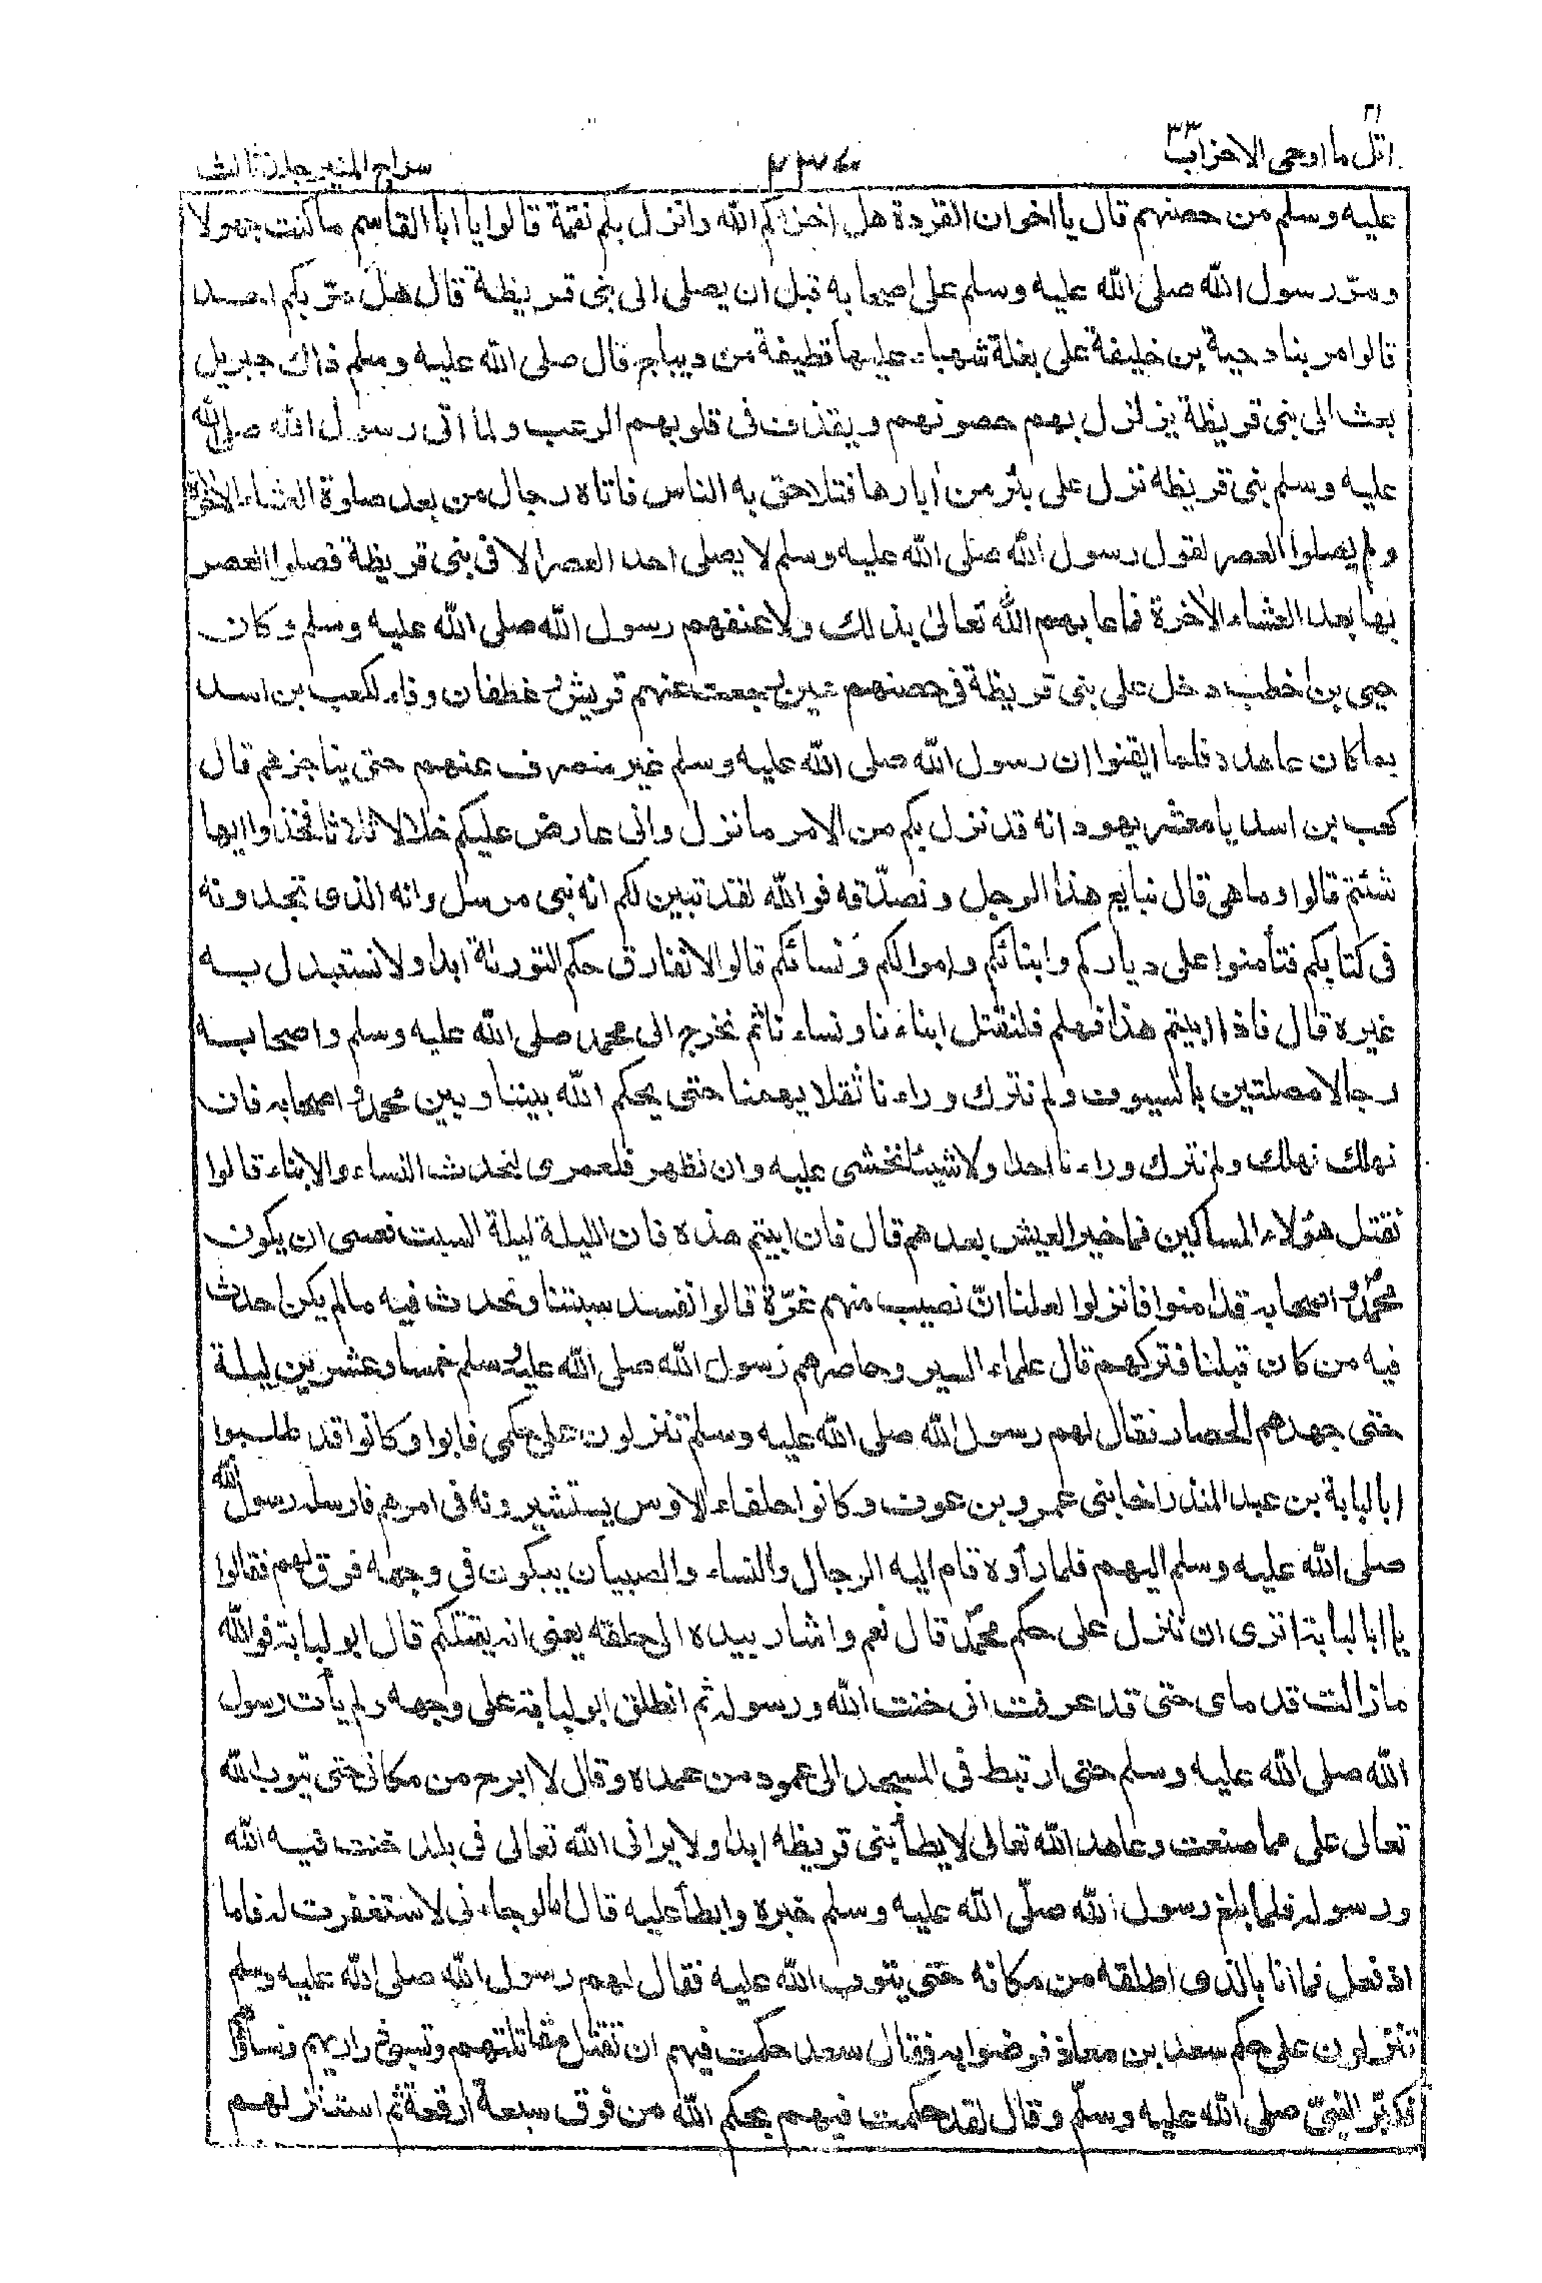 اتل ما اوحى الاحزاب ٣٣
٢١
٢٣٧
سراج المنير جلد ثالث
عليه وسلم من حصنهم قال يا اخوان القردة هل اخزاكم الله وانزل بكم نقمة قالوا يا ابا القاسم ما كنت جهولا
ومرّ رسول الله صلى الله عليه وسلم على اصحابه قبل ان يصلى الى بنى قريظة قال هل مرّ بكم احد
قالوا مر بنا دحية بن خليفة على بغلة شهباء عليها قطيفة من ديباج قال صلى الله عليه وسلم ذاك جبريل
بعث الى بنى قريظة يزلزل بهم حصونهم ويقذف فى قلوبهم الرعب ولما اتى رسول الله صلى الله
عليه وسلم بنى قريظه نزل على بئر من أبارها فتلاحق به الناس فاتاه رجال من بعد صلوة العشاء الاخرة
ولم يصلوا العصر لقول رسول الله صلى الله عليه وسلم لا يصلى احد العصر الا فى بنى قريظة فصلوا العصر
بها بعد العشاء الاخرة فما عابهم الله تعالىٰ بذلك ولا عنفهم رسول الله صلى الله عليه وسلم وكان
حيى بن اخطب دخل على بنى قريظة فى حصنهم حين رجعت عنهم قريش و غطفان وفاء لكعب بن اسد
بما كان عاهده فلما ايقنوا ان رسول الله صلى الله عليه وسلم غير منصرف عنهم حتى يناجزهم قال
كعب بن اسد يا معشر يهود انه قد نزل بكم من الامر ما نزل وانى عارض عليكم خلالا ثلاثا فخذوا ايها
شئتم قالوا وما هى قال نبايع هذا الرجل ونصدّقه فوالله لقد تبين لكم انه نبى مرسل وانه الذى تجدونه
فى كتابكم فتأمنوا على دياركم وابنائكم واموالكم ونسائكم قالوا لا نفارق حكم التورىة ابدا ولا نستبدل به
غيره قال فاذا ابيتم هذا فهلم فلنقتل ابناءنا ونساءنا ثم نخرج الى محمد صلى الله عليه وسلم واصحابه
رجالا مصلتين بالسيوف ولم نترك وراءنا ثقلا يهمنا حتى يحكم الله بيننا وبين محمد و اصحابه فان
نهلك نهلك ولم نترك وراءنا احدا ولا شيئا نخشى عليه وان نظهر فلعمرى لنحدث النساء والابناء قالوا
نقتل هؤلاء المساكين فما خير العيش بعدهم قال فان ابيتم هذه فان الليلة ليلة السبت فعسى ان يكون
محمّد و اصحابه قد امنوا فانزلوا لعلنا ان نصيب منهم غرّة قالوا نفسد سبتنا ونحدث فيه ما لم يكن احدث
فيه من كان قبلنا فتركهم قال علماء السير وحاصرهم رسول الله صلى الله عليه وسلم خمسا وعشرين ليلة
حتى جهدهم الحصار فقال لهم رسول الله صلى الله عليه وسلم تنزلون على حكمى فابوا وكانوا قد طلبوا
ابا لبابة بن عبد المنذر اخا بنى عمرو بن عوف وكانوا حلفاء الاوس يستشيرونه فى امرهم فارسله رسول الله
صلى الله عليه وسلم اليهم فلما رأوه قام اليه الرجال والنساء والصبيان يبكون فى وجهه فرق لهم فقالوا
يا ابا لبابة اترى ان ننزل على حكم محمّد قال نعم واشار بيده الى حلقه يعنى انه يقتلكم قال ابو لبابة فوالله
ما زالت قدماى حتى قد عرفت انى خنت الله ورسوله ثم انطلق ابو لبابة على وجهه ولم يأت رسول
الله صلى الله عليه وسلم حتى ارتبط فى المسجد الى عمود من عمده وقال لا ابرح من مكانى حتى يتوب الله
تعالى على مما صنعت وعاهد الله تعالى لا يطأ بنى قريظه ابدا ولا يرانى الله تعالى فى بلد خنت فيه الله
ورسوله فلما بلغ رسول الله صلّى الله عليه وسلم خبره وابطأ عليه قال اما لو جاءنى لاستغفرت له فاما
اذ فعل فما انا بالذى اطلقه من مكانه حتى يتوب الله عليه فقال لهم رسول الله صلى الله عليه وسلم
تنزلون على حكم سعد بن معاذ فرضوا به فقال سعد حكمت فيهم ان تقتل مقاتلتهم وتسبى ذراريهم ونساؤهم
فكبّر النبىّ صلى الله عليه وسلّم وقال لقد حكمت فيهم بحكم الله من فوق سبعة ارقعة ثم استنزلهم